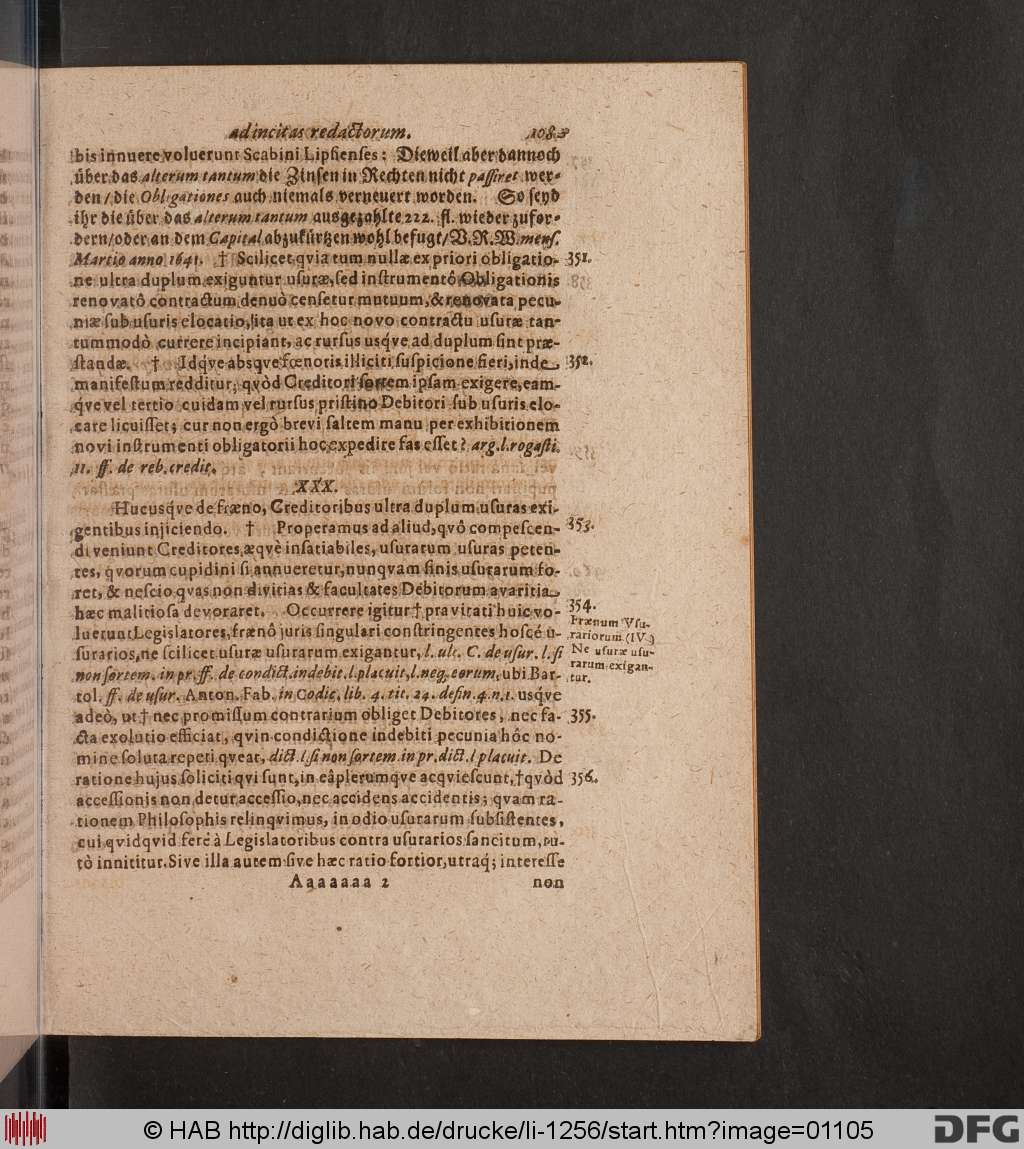 ad incitas redactorum. 1083
bis innuere voluerunt Scabini Lipſienſes: Dieweil aber dannoch
über das alterum tantum die Zinſen in Rechten nicht paſſiret wer-
den / die Obligationes auch niemals verneuert worden. So ſeyd
ihr die über das alterum tantum ausgezahlte 222. fl. wieder zufor-
dern/oder an dem Capital abzukürtzen wohl befugt/V. R. W. menſ.
Martio anno 1641. † Scilicet qvia tum nullæ ex priori obligatio- 351.
ne ultra duplum exiguntur uſuræ, ſed inſtrumentô Obligationis
renovatô contractum denuò cenſetur mutuum, & renovata pecu-
niæ ſub uſuris elocatio, ita ut ex hoc novo contractu uſuræ tan-
tummodò currere incipiant, ac rurſus usq́ve ad duplum ſint præ-
ſtandæ. † Idq́ve absqve fœnoris illiciti ſuſpicione fieri, inde 352.
manifeſtum redditur; qvòd Creditori ſortem ipſam exigere, eam-
q́ve vel tertio cuidam vel rurſus priſtino Debitori ſub uſuris elo-
care licuiſſet; cur non ergò brevi ſaltem manu per exhibitionem
novi inſtrumenti obligatorii hoc expedire fas eſſet? arg. l. rogaſti.
11. ff. de reb. credit.
XXX.
Hucusq́ve de fræno, Creditoribus ultra duplum uſuras exi-
gentibus injiciendo. † Properamus ad aliud, qvô compeſcen- 353.
di veniunt Creditores, æqvè inſatiabiles, uſurarum uſuras peten-
tes, qvorum cupidini ſi annueretur, nunqvam finis uſurarum fo-
ret, & neſcio qvas non divitias & facultates Debitorum avaritia
hæc malitioſa devoraret. Occurrere igitur † pravitati huic vo- 354.
luerunt Legislatores, frænô juris ſingulari conſtringentes hoſcé u-
ſurarios, ne ſcilicet uſuræ uſurarum exigantur, l. ult. C. de uſur. l. ſi
non ſortem. in pr. ff. de condict. indebit. l. placuit, l. neq; eorum, ubi Bar-
tol. ff. de uſur. Anton. Fab. in Codic. lib. 4. tit. 24. defin. 4. n. 1. usq́ve
Frænum Uſu-
rariorum (IV.)
Ne uſuræ uſu-
rarum exigan-
tur.
adeò, ut † nec promiſſum contrarium obliget Debitores, nec fa- 355.
cta exolutio efficiat, qvin condictione indebiti pecunia hôc no-
mine ſoluta repeti qveat, dict. l. ſi non ſortem. in pr. dict. l. placuit. De
ratione hujus ſoliciti qvi ſunt, in eâ plerumq́ve acqvieſcunt, † qvòd 356.
acceſſionis non detur acceſſio, nec accidens accidentis; qvam ra-
tionem Philoſophis relinqvimus, in odio uſurarum ſubſiſtentes,
cui qvidqvid ferè à Legislatoribus contra uſurarios ſancitum, tu-
tò innititur. Sive illa autem ſive hæc ratio fortior, utraq; intereſſe
Aaaaaaa 2 non
© HAB http://diglib.hab.de/drucke/li-1256/start.htm?image=01105
DFG